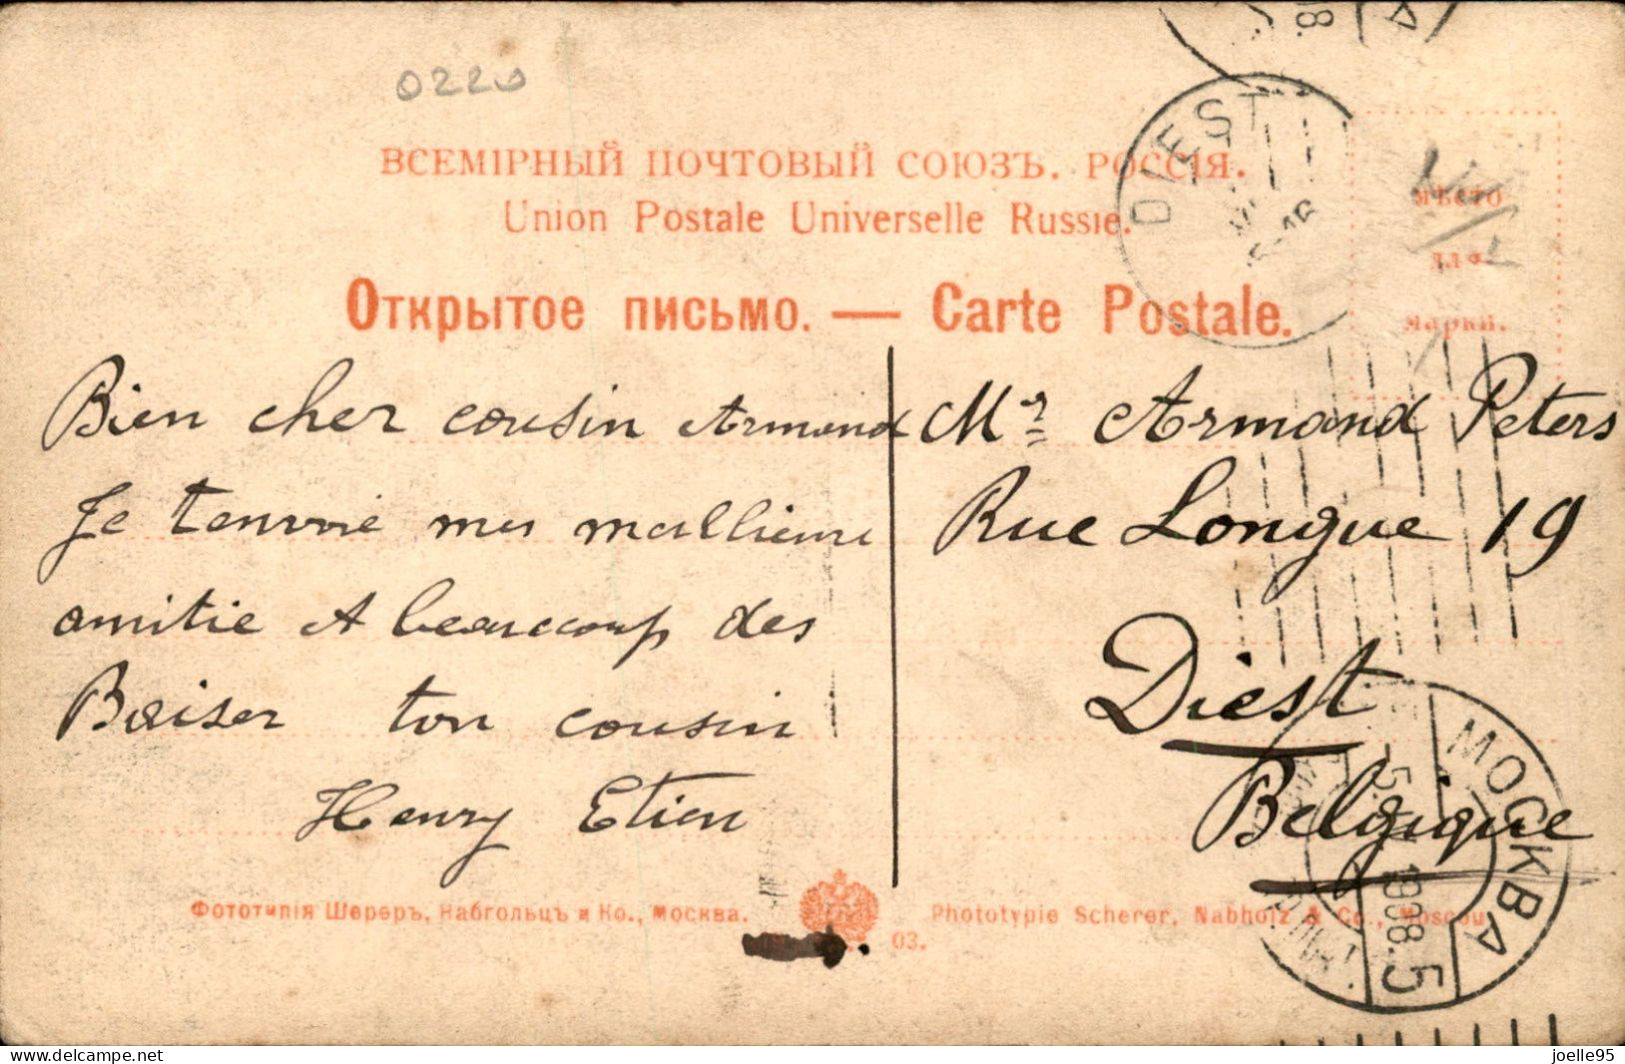 0220
ВСЕМІРНЫЙ ПОЧТОВЫЙ СОЮЗЪ. РОССІЯ.
Union Postale Universelle Russie.
Открытое письмо. — Carte Postale.
мѣсто
для
марки.
DIEST
Bien cher cousin Armand
Je tenvoie mes mellieure
amitie et beaucoup des
Baiser ton cousin
Henry Etien
Mr Armand Peters
Rue Longue 19
Diest
Belgique
МОСКВА
1908. 5
Фототипія Шереръ, Набгольцъ и Ко., Москва.
Phototypie Scherer, Nabholz & Co., Moscou
03.
delcampe.net
joelle95